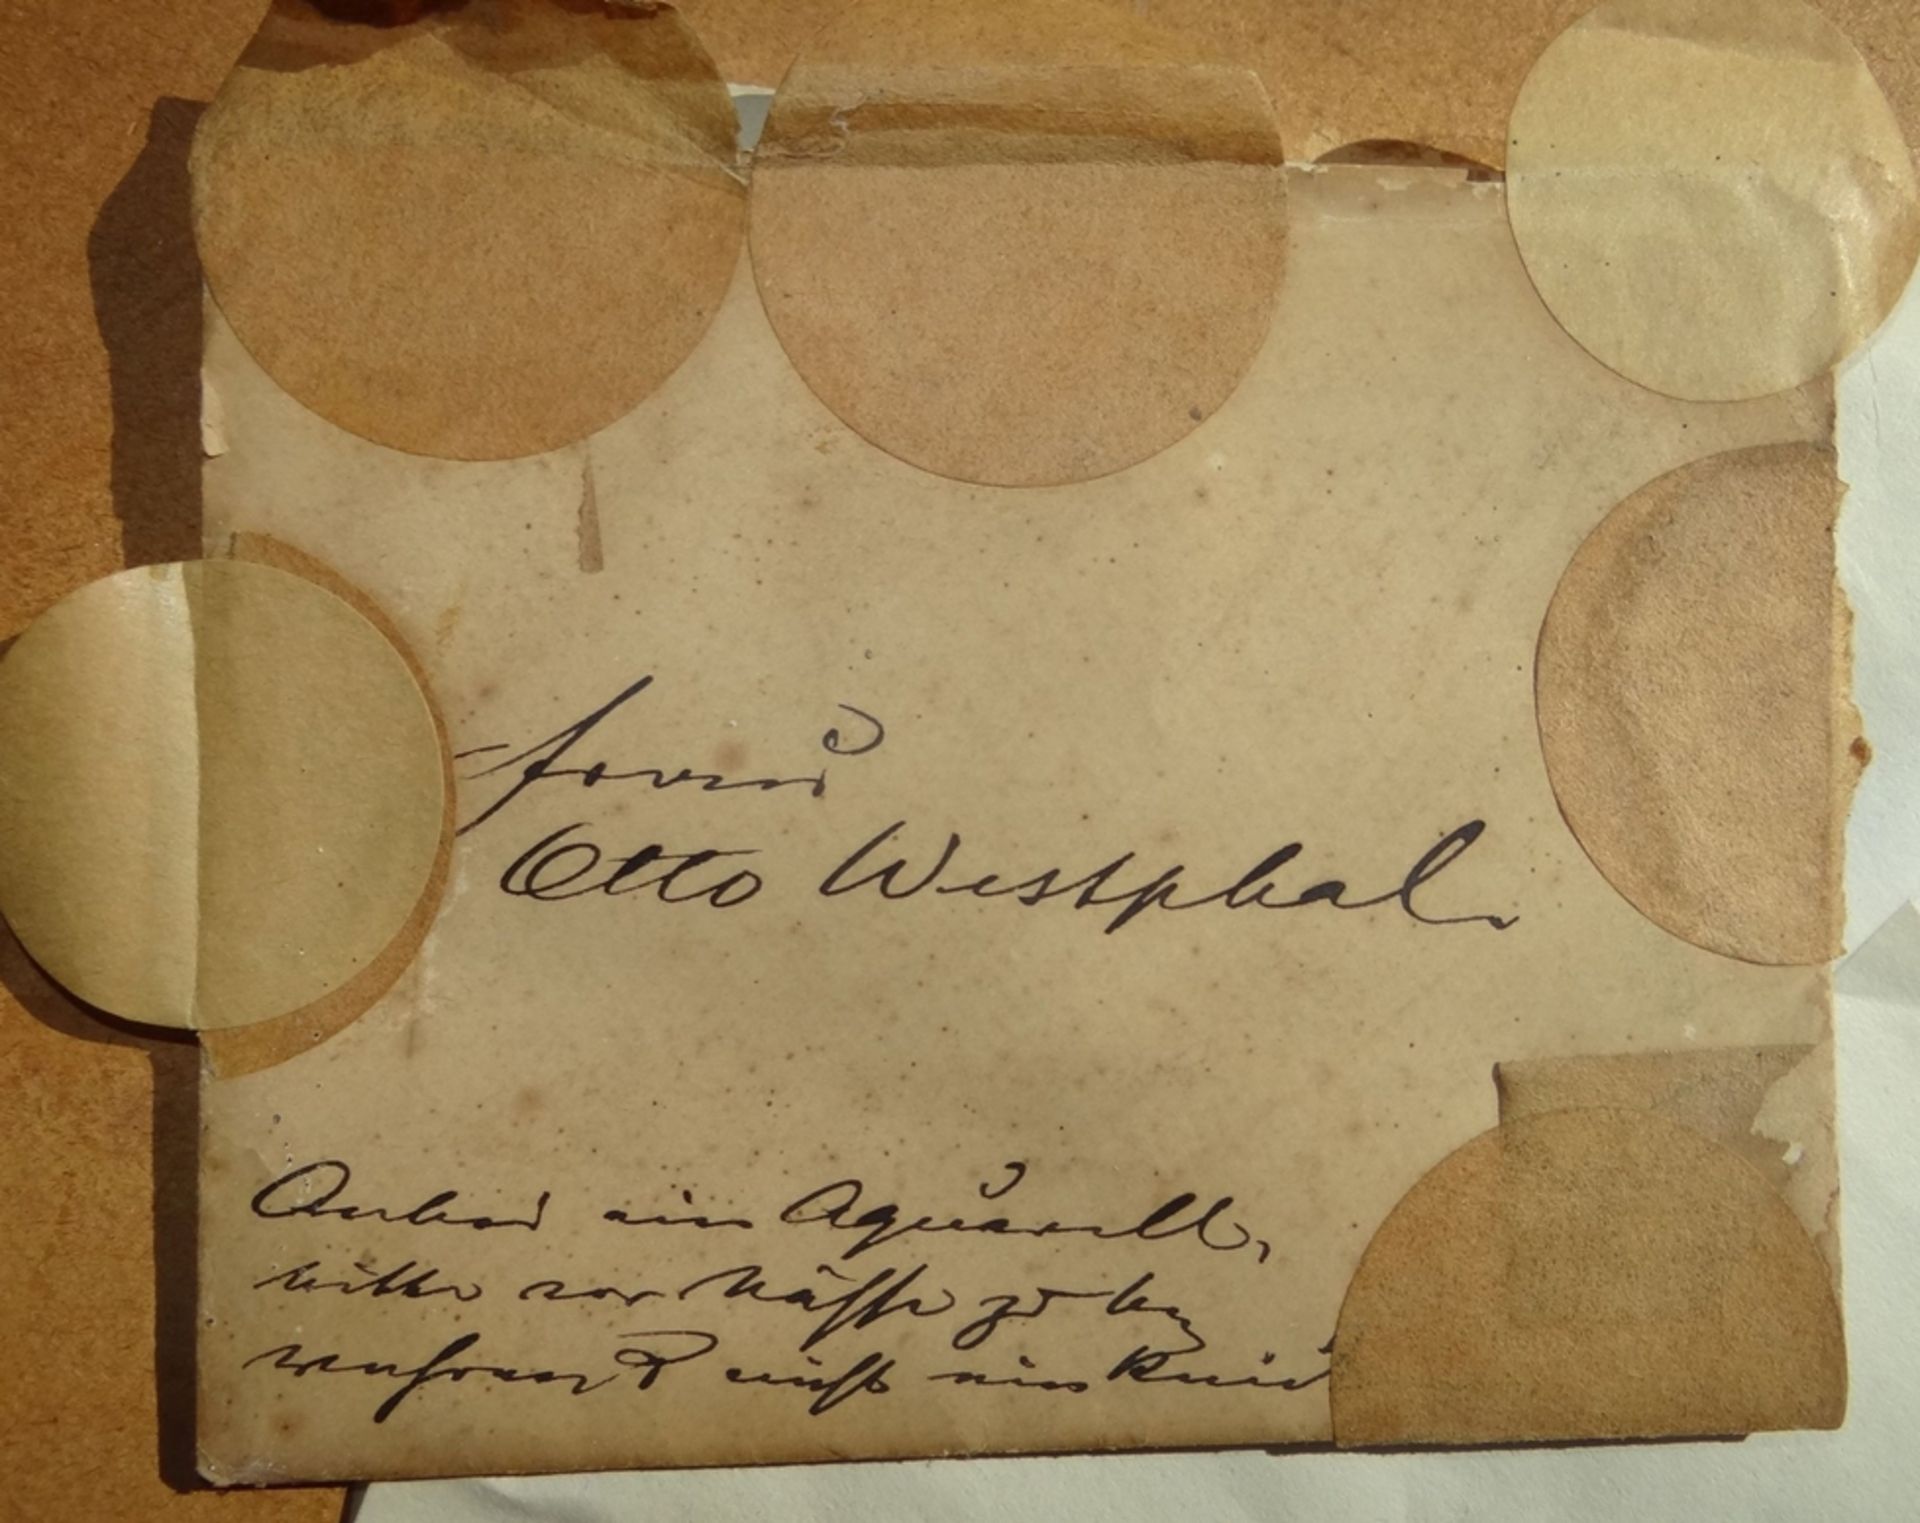 Frau
Otto Westphal.
Anbei ein Aquarell,
bitte vor Nässe zu be=
wahren & nicht ein